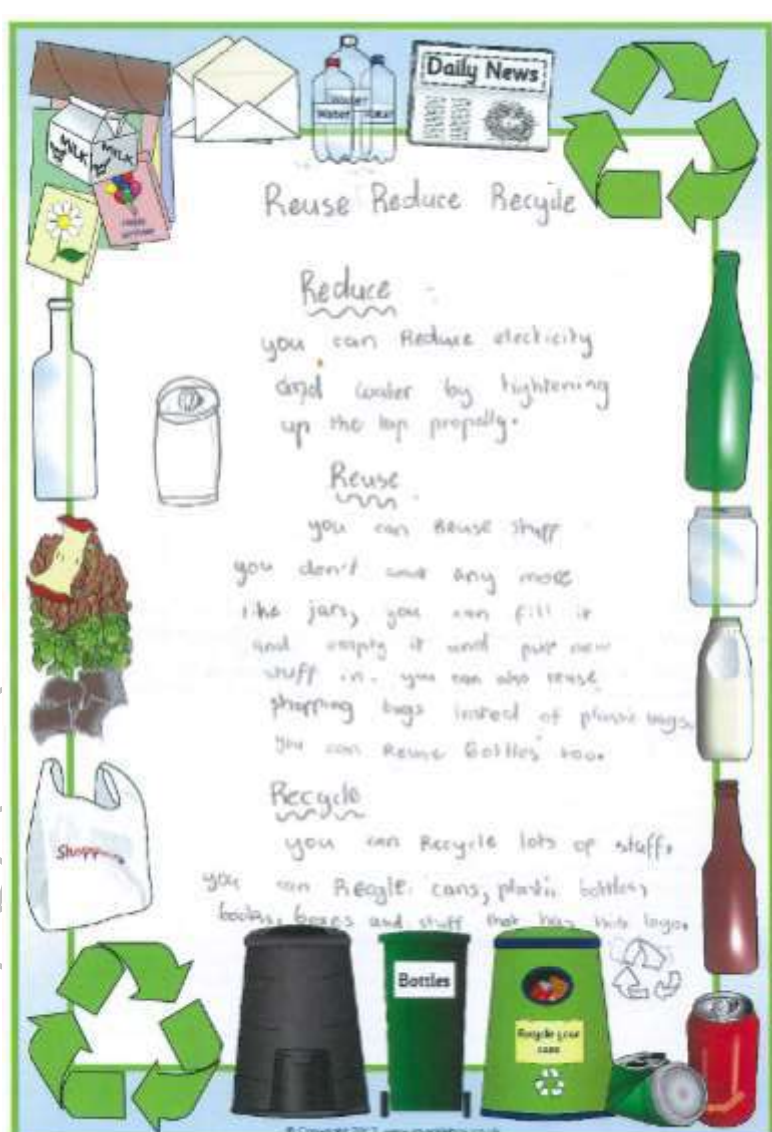 Daily News
Water
Water
MILK
MILK
Reuse Reduce Recycle
Reduce
you can Reduce electicity
and water by tightening
up the tap propelly.
Reuse
you can Reuse stuff
you don't any more
like jars, you can fill it
and empty it and put new
stuff in. you can also reuse
shopping bags insted of plastic bags.
you can Reuse Bottles too.
Recycle
you can Recycle lots of stuff.
you can Recycle cans, plastic bottles,
books, boxes and stuff that has this logo.
Shopping
Bottles
Recycle your
cans
© Copyright 2017